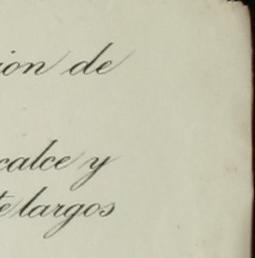 ion de
calce y
te largos